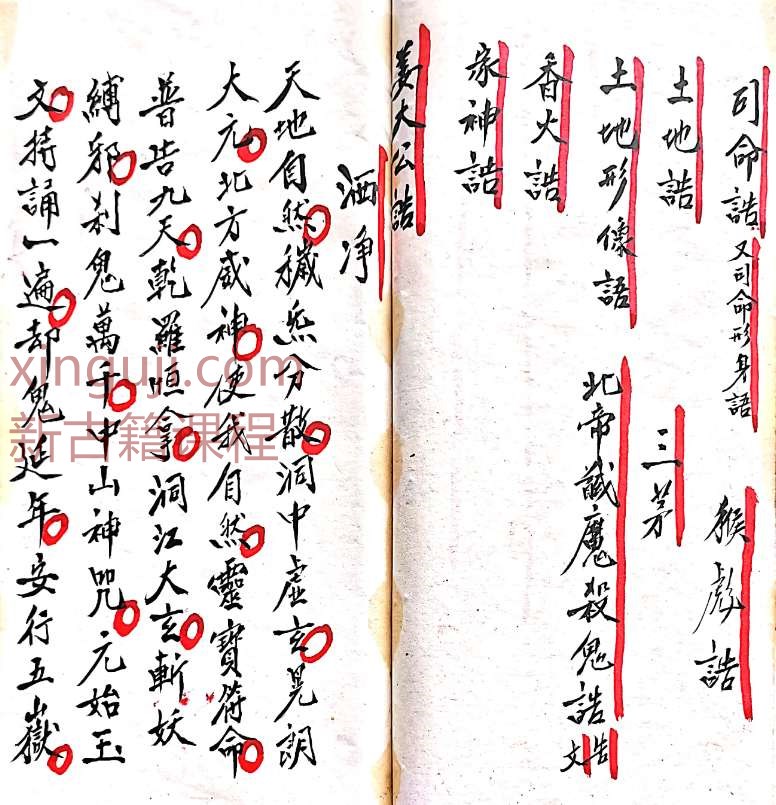 司命誥 又司命形身語
猴彪誥
土地誥
三茅
土地形像語
北帝誠魔殺鬼誥 告文
香火誥
家神誥
姜大公誥
洒净
天地自然穢炁分散洞中虛玄晃朗
大元北方威神使我自然靈寶符命
普告九天乾羅恒拿洞江大玄斬妖
縛邪刹鬼萬千中山神咒元始玉
文持誦一遍却鬼延年安行五嶽
xinguji.com
新古籍课程